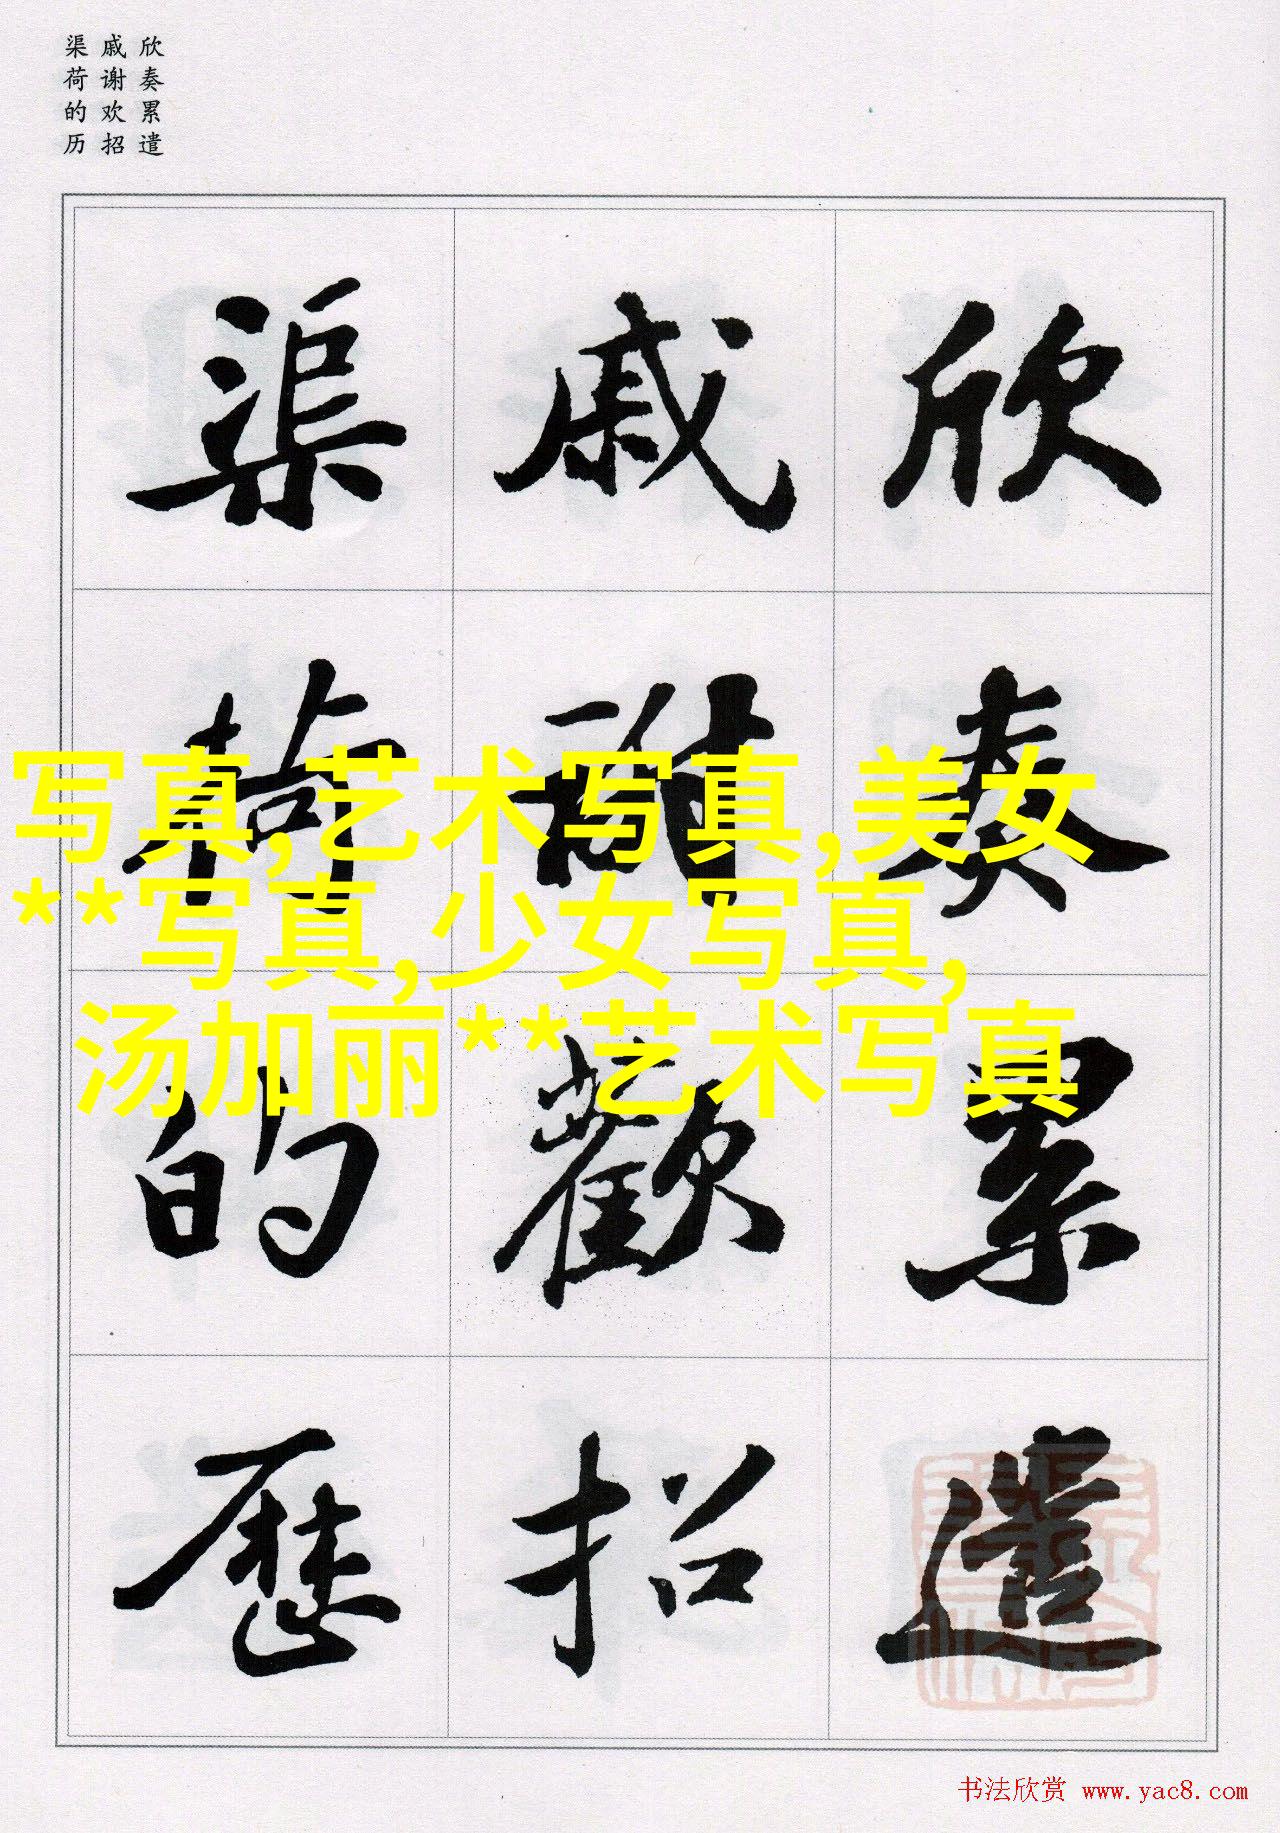 欣奏累遣
戚谢欢招
渠荷的历
欣奏累遣
戚謝歡招
渠荷的歷
写真,艺术写真,美女
**写真,少女写真,
汤加丽**艺术写真
书法欣赏 www.yac8.com